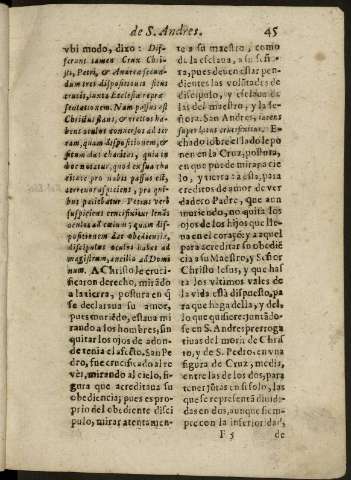 de S. Andres. 45
vbi modo, dixo: Dif-
ferunt tamen Crux Chri-
sti, Petri, & Andreæ secun-
dum tres dispositiones siens
crucis, iuxta Ecclesiæ repræ-
sentationem. Nam passus est
Christus stans, & erectos ha-
bens oculos conuersos ad ter
ram, quam dispositionem, &
situm dat charitas, quia in
hoc notatur, quod ex sua cha
ritate pro nobis passus est,
terrenos aspiciens, pro qui-
bus patiebatur. Petrus verò
suspiciens crucifixitur tenēs
oculos ad cœlum; quam dis-
positionem dat obediētia,
discipulus oculos habet ad
magistrum, ancilla ad Domi
num. A Christo le cruci-
ficaron derecho, mirādo
a la tierra, postura en q̄
se declaraua su amor,
pues muriēdo, estaua mi
rando a los hombres, sin
quitar los ojos de adon-
de tenia el afecto. San Pe
dro, fue crucificado al re
ves, mirando al cielo, fi-
gura que acreditaua su
obediencia; pues es pro-
prio del obediente disci
pulo, mirar atentamen-
te a su maestro, como
de la esclaua, a su señ-
ra, pues deuen estar pen-
dientes las volūtades de
discipulo, y esclaua de
las del maestro, y la se-
ñora. San Andres, iacens
super latus crucifixitur. E-
chado sobre el lado le po
nen en la Cruz, postura,
en que puede mirar a cie
lo, y tierra: a esta, para
creditos de amor de ver
dadero Padre, que aun
muriendo, no quita los
ojos de los hijos que lle-
ua en el coraçō: y a aquel
para acreditar su obediē
cia a su Maestro, y Señor
Christo Iesus, y que has
ta los vltimos vales de
la vida està dispuesto, pa
ra que haga della, y del,
lo que quisiere: juntādo-
se en S. Andres prerroga
tiuas del morir de Chris
to, y de S. Pedro, en vna
figura de Cruz, media,
entre las de los dos, para
tener jūtas en si solo, las
que se representā diuidi-
das en dos, aunque siem-
pre con la inferioridad,
F 5 de